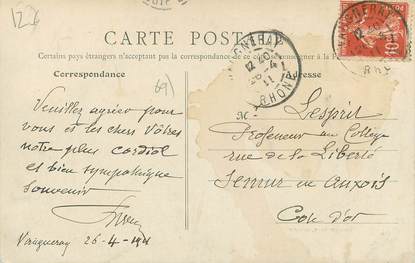 CARTE POSTALE
Certains pays étrangers n'acceptant pas la correspondance de ce côté, se renseigner à la Poste
Correspondance
Adresse
69
VAUGNERAY
12 20
26 4
11
RHONE
Veuillez agréer pour
vous et les chers Vôtres
notre plus cordial
et bien sympathique
souvenir
Vaugneray 26-4-1911
M
Lesprit
Professeur au Collège
rue de la Liberté
Semur en Auxois
Côte d'or
10